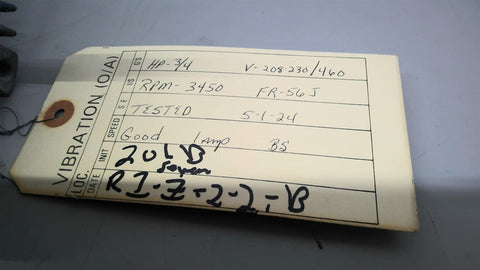 HP-3/4 V-208-230/460
RPM-3450 FR-56J
TESTED 5-1-24
Good Lamp BS
201B
Seven
R1-Z-2-2-B
VIBRATION (O/A)
LOC.
DATE INIT SPEED S.E. I.S G'S